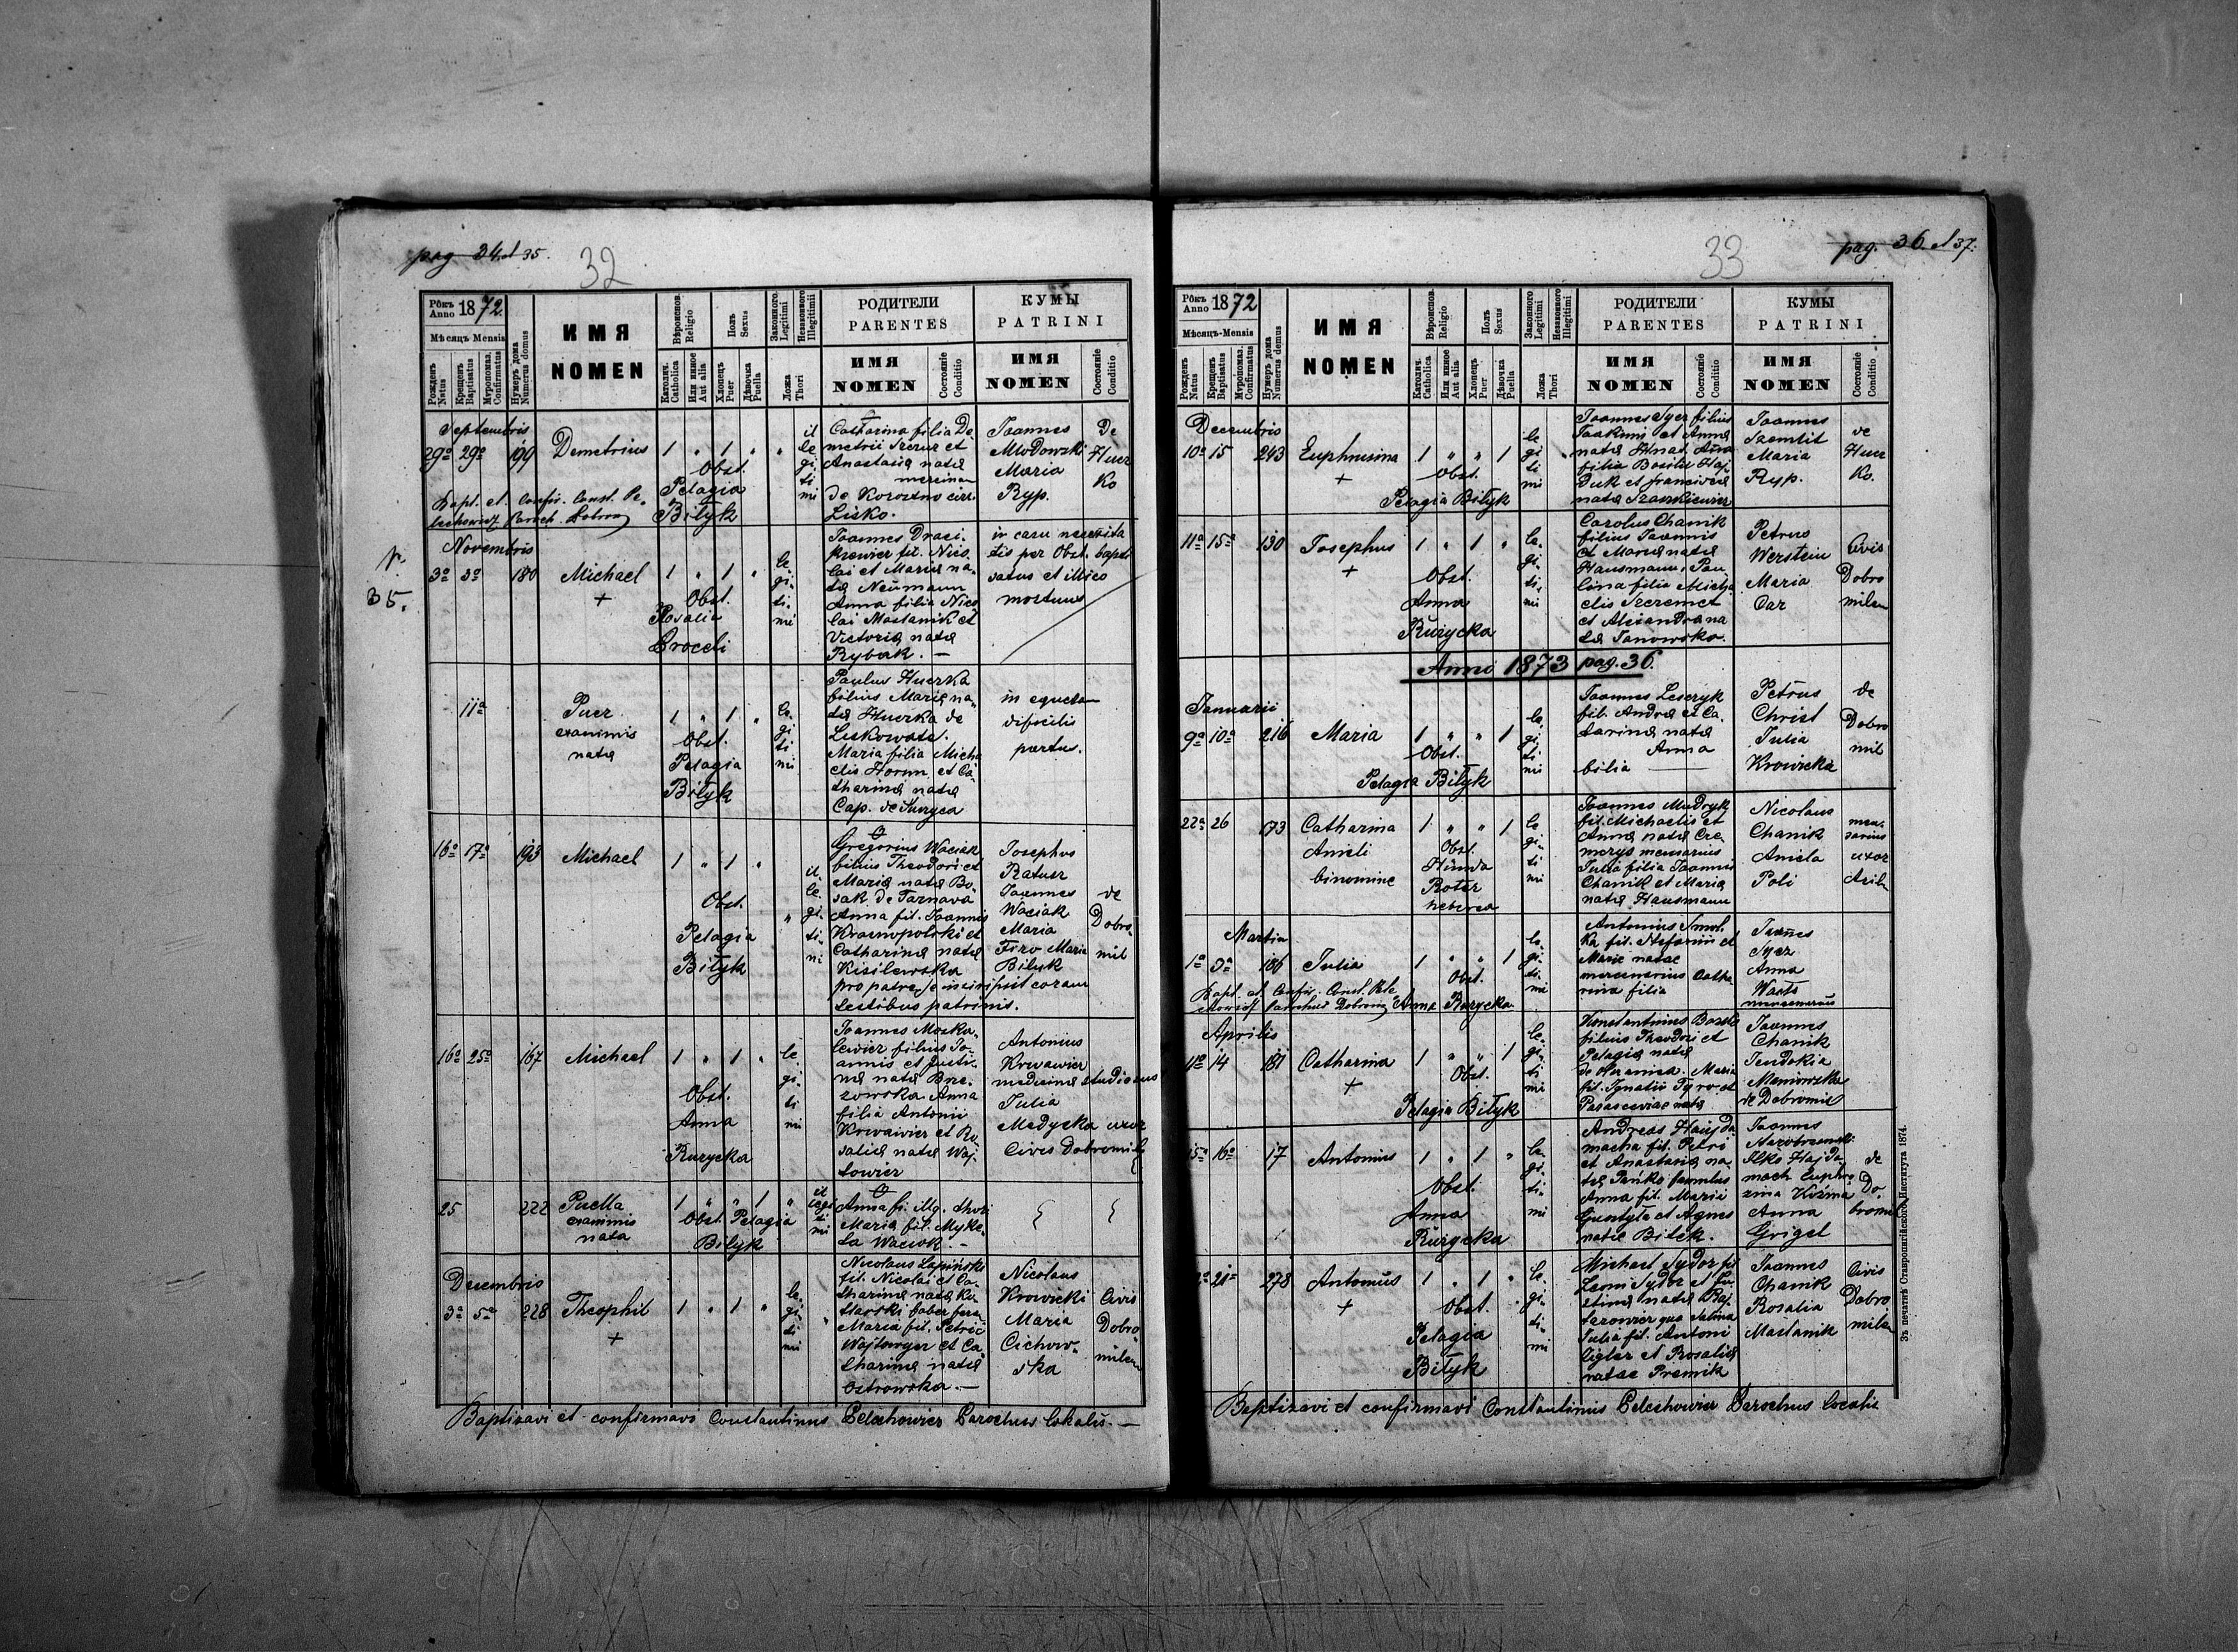 pag 34 et 35.
32
Рôкъ Anno 1872
Мѣсяцъ Mensis
Рожденъ Natus
Крещенъ Baptisatus
Муропомаз. Confirmatus
Нумеръ дома Numerus domus
ИМЯ
NOMEN
Вѣроиспов. Religio
Католич. Catholica
Или инное Aut alia
Полъ Sexus
Хлопецъ Puer
Дѣвочка Puella
Законного Legitimi
Незаконного Illegitimi
Ложа Thori
РОДИТЕЛИ
PARENTES
ИМЯ
NOMEN
Состояніе Conditio
КУМЫ
PATRINI
ИМЯ
NOMEN
Состояніе Conditio
Septembris
29a 29a 199 Demetrius 1 " 1 " "
Obst.
Pelagia
Bilyk
il
le
gi
ti
mi
Catharina filia De
metrii Szerus et
Anastasia nata
de Korostno circ.
Lisko.
Joannes
Maria
Ryp.
De
Hucz
Ko
Bapt. et Confir. Const. Pe
lechowicz Paroch.
35.
Novembris
3a 3a 180 Michael 1 " 1 "
+
Obst.
Rosalia
le.
gi.
ti.
mi
Joannes Draci.
kiewicz fil. Nico
lai et Maria na
ta Neumann
Anna filia Nico
lai Maslanik et
Victoria nata
Rybak. —
in casu necessita
tis per Obst. bapti
satus et illico
mortuus
11a
Puer
exanimis
nata
1 " 1 "
Obst.
Pelagia
Bilyk
le.
gi
ti
mi
Paulus Huczka
filius Maria na
ta Huczka de
Liskowate.
Maria filia Micha
elis Horun et Ca
tharina nata
Cap. de
in
difficilis
partus.
16a 17a 193 Michael 1 " 1 "
Obst.
Pelagia
Bilyk
il.
le.
gi.
ti.
mi
Gregorius Waciak
filius Theodori et
Maria nata Bo
sak. de Tarnava
Anna fil. Joannis
Krasnopolski et
Catharina nata
Kisilewska
pro patre se inscripsit coram
testibus patrinis.
Josephus
Ratusz
Joannes
Waciak
Maria
Firo Maria
Bilyk
de
Dobro
mil
16a 25a 167 Michael 1 " 1 "
Obst.
Anna
Ruzycka
le.
gi.
ti
mi
Joannes Moska
lewicz filius Jo
annis et Justi
na nata Brze
zowska Anna
filia Antonii
Krwawicz et Ro
salia nata Woj
towicz
Antonius
Krwawicz
medicina studiosus
Julia
Medycka uxor
Civis Dobromil
25 222 Puella
exanimis
nata
1 " " 1 "
Obst. Pelagia
Bilyk
il
legi
ti
mi
Anna fi. illg. thori
Maria fil. Myke
ta Waciak. —
Decembris
3a 5a 228 Theophil 1 " 1 "
+
le.
gi
ti
mi
Nicolaus Lapinski
fil. Nicolai et Ca
tharina nata Ki
slarski faber ferra
Maria fil. Petri
Wojtowycz et Ca
tharina nata
Ostrowska. —
Nicolaus
Krowicki
Maria
Cichow
ska
Civis
Dobro
milen
Baptizavi et confirmavi Constantinus Pelechowicz Parochus lokalis. —
33
pag. 36 et 37.
Рôкъ Anno 1872
Мѣсяцъ-Mensis
Рожденъ Natus
Крещенъ Baptisatus
Муропомаз. Confirmatus
Нумеръ дома Numerus domus
ИМЯ
NOMEN
Вѣроиспов. Religio
Католич. Catholica
Или инное Aut alia
Полъ Sexus
Хлопецъ Puer
Дѣвочка Puella
Законного Legitimi
Незаконного Illegitimi
Ложа Thori
РОДИТЕЛИ
PARENTES
ИМЯ
NOMEN
Состояніе Conditio
КУМЫ
PATRINI
ИМЯ
NOMEN
Состояніе Conditio
Decembris
10a 15 243 Euphrusina 1 " " 1
+
Obst.
Pelagia Bilyk
le
gi
ti
mi
Joannes Sycz filius
Joakimi et Anna
nata Hnat. Anna
filia Basilii Haj
duk et francisca
nata Szankiewicz
Joannes
Szemlit
Maria
Ryp.
de
Hucz
Ko.
11a 15a 130 Josephus 1 " 1 "
+
Obst.
Anna
Ruzycka
le.
gi.
ti.
mi
Carolus Chanik
filius Joannis
et Maria nata
Hausmann. Pau
lina filia Micha
elis Szeremet
et Alexandra na
ta Janowska.
Petrus
Werstein
Maria
Car
Civis
Dobro
milen
Anno 1873 pag. 36.
Januarii
9a 10a 216 Maria 1 " " 1
Obst.
Pelagia Bilyk
le.
gi
ti
mi
Joannes Lesczyk
fil. Andrea et Ca
tarina nata
Anna
filia —
Petrus
Christ
Julia
Krowicka
de
Dobro
mil
22a 26 173 Catharina 1 " " 1
Anieli
binomine
Obst.
Hinda
Roter
hebrea
le
gi.
ti
mi
Joannes Mudryk
fil. Michaelis et
Anna nata Cze
merys mensarius
Julia filia Joannis
Chanik et Maria
nata Hausmann
Nicolaus
Chanik
Aniela
Poli
men
sarius
uxor
Martii
1a 3a 186 Julia 1 " " 1
Obst.
Anna Ruzycka
le.
gi.
ti.
mi
Antonius Smol
ka fil. Stefanii et
Marie natae
mercenarius Catha
rina filia
Joannes
Sycz
Anna
mercenarius
Bapt. et Confir. Const. Pele
chowicz Parochus
Aprilis
11a 14 181 Catharina 1 " " 1
+
Obst.
Pelagia Bilyk
le.
gi.
ti
mi
Konstantinus
filius Theodori et
Pelagia nata
Maria
fil. Ignatii Tyro et
Parasceviae nata
Joannes
Chanik
Teudokia
de Dobromil
15a 16a 17 Antonius 1 " 1 "
Obst.
Anna
Ruzycka
le.
gi.
ti.
mi
Andreas Hajda
macha fil. Petri
et Anastasia na
ta Pańko famulus
Anna fil. Marii
et Agnes
natae Bilek.
Joannes
Ilko Hajda
mach Euphro
zina Kuzma
Anna
Grigel
de
Do.
bromil
21a 278 Antonius 1 " 1 "
+
Obst.
Pelagia
Bilyk
le.
gi.
ti.
mi
Michael Sydor fil
Leoni Sydor et Ju
stina nata
Julia fil. Antoni
Cigler et Rosalia
natae Premik
Joannes
Chanik
Rosalia
Maslanik
Civis
Dobro
milen
Baptizavi et confirmavi Constantinus Pelechowicz Parochus localis
Зъ печатнѣ Ставропигійского Института 1874.